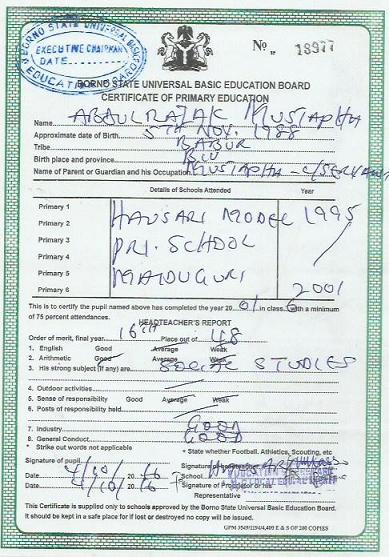 BORNO STATE UNIVERSAL BASIC EDUCATION BOARD
EXECUTIVE CHAIRMAN
DATE
No. 18977
BORNO STATE UNIVERSAL BASIC EDUCATION BOARD
CERTIFICATE OF PRIMARY EDUCATION
Name ABDULRAZAK MUSTAPHA
Approximate date of Birth 5TH NOV. 1988
Tribe BABUR
Birth place and province BIU
Name of Parent or Guardian and his Occupation MUSTAPHA - C/SERVANT
Details of Schools Attended Year
Primary 1 HAUSARI MODEL 1995
Primary 2
Primary 3 PRI. SCHOOL
Primary 4
Primary 5 MAIDUGURI
Primary 6 2001
This is to certify the pupil named above has completed the year 2001 in class 6 with a minimum
of 75 percent attendances.
HEADTEACHER'S REPORT
Order of merit, final year 16th Place out of 48
1. English Good Average Weak
2. Arithmetic Good Average Weak
3. His strong subject (if any) are SOCIAL STUDIES
4. Outdoor activities
5. Sense of responsibility Good Average Weak
6. Posts of responsibility held
7. Industry GOOD
8. General Conduct GOOD
* Strike out words not applicable + State whether Football, Athletics, Scouting, etc
Signature of pupil Signature of
Date 4/10/2016 School
Date 4/10/2016 Signature of Proprietor or his
Representative
This Certificate is supplied only to schools approved by the Borno State Universal Basic Education Board.
It should be kept in a safe place for if lost or destroyed no copy will be issued.